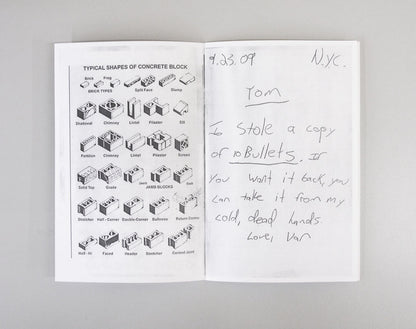 TYPICAL SHAPES OF CONCRETE BLOCK
Brick Frog
BRICK TYPES Split Face Slump
Chimney Lintel Pilaster Sill
Partition Chimney Lintel Pilaster Screen
Solid Top Grade Jamb Sash
JAMB BLOCKS
Stretcher Half - Corner Double-Corner Bullnose
Faced Header Stretcher Control Joint
9.23.09 N.Y.C.
Tom
I Stole a copy
of 10 Bullets. If
you want it back, you
can take it from my
cold, dead hands
Love, Van